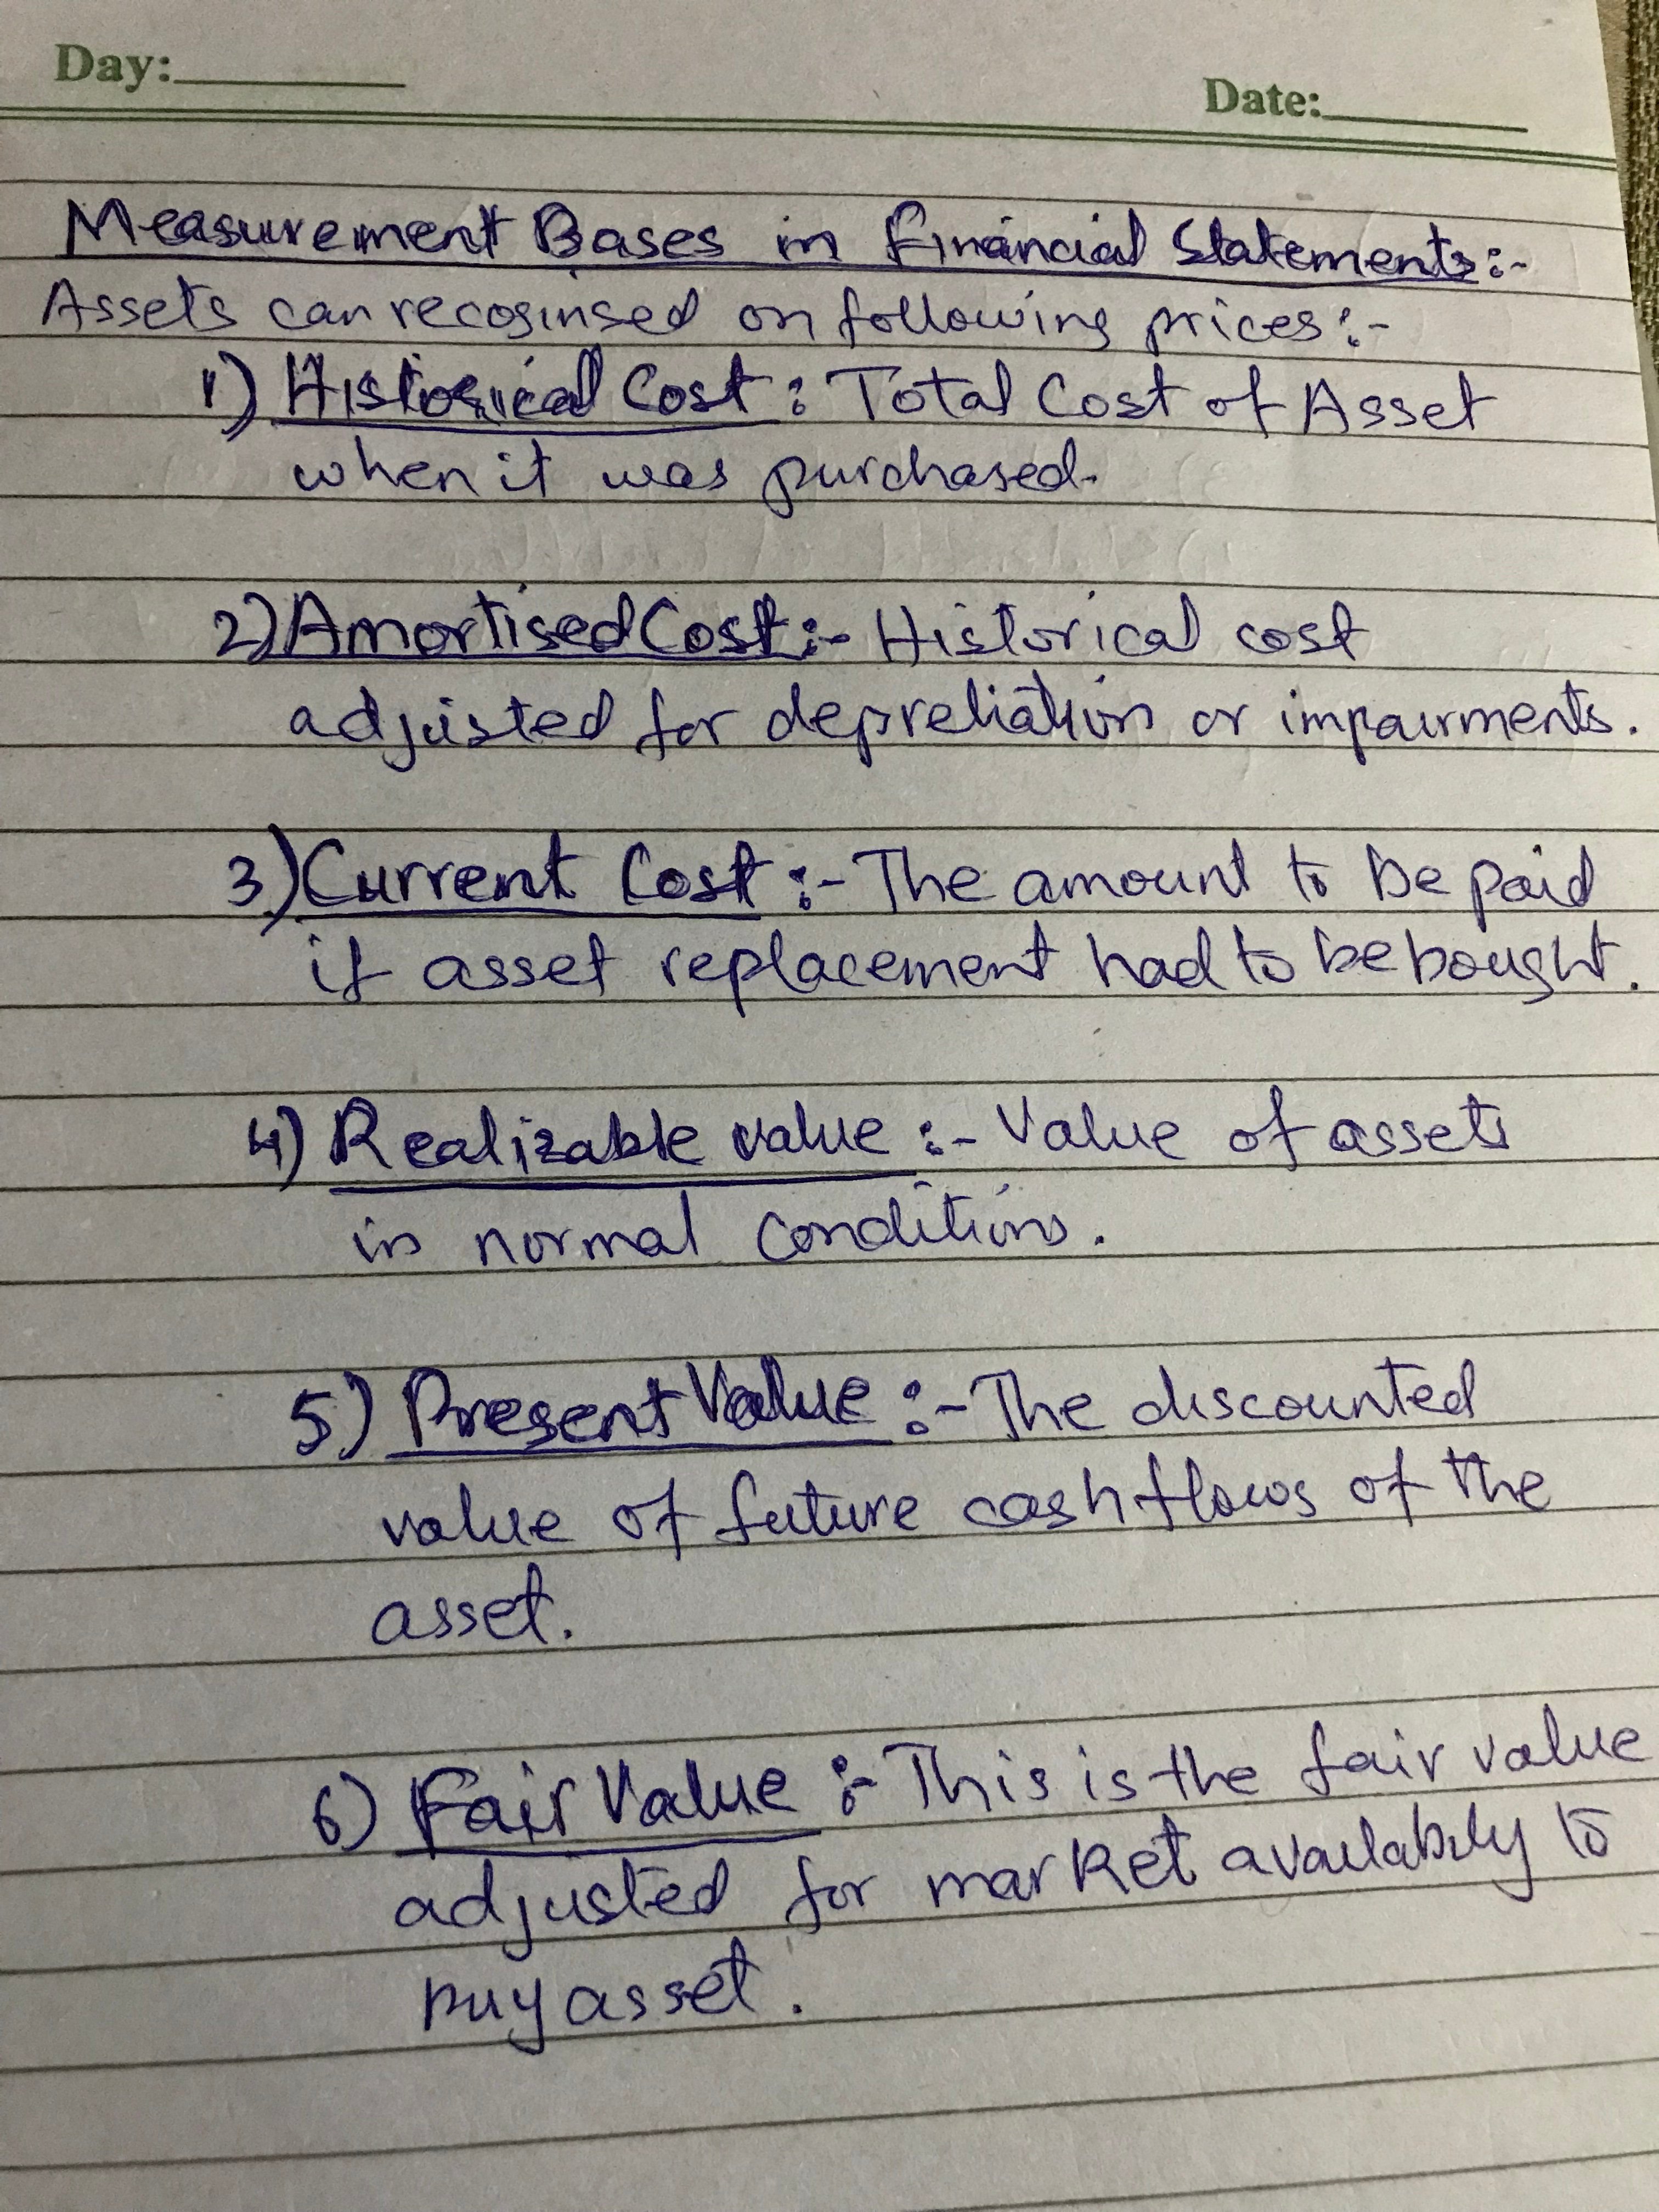 Day:
Date:
Measurement Bases in Financial Statements:-
Assets can recoginsed on following prices:-
1) Historical Cost: Total Cost of Asset
when it was purchased.
2) Amortised Cost:- Historical cost
adjusted for depreliation or impairments.
3) Current Cost:- The amount to be paid
if asset replacement had to be bought.
4) Realizable value:- Value of assets
in normal conditions.
5) Present Value:- The discounted
value of future cash flows of the
asset.
6) Fair Value:- This is the fair value
adjusted for market availabily to
buy asset.